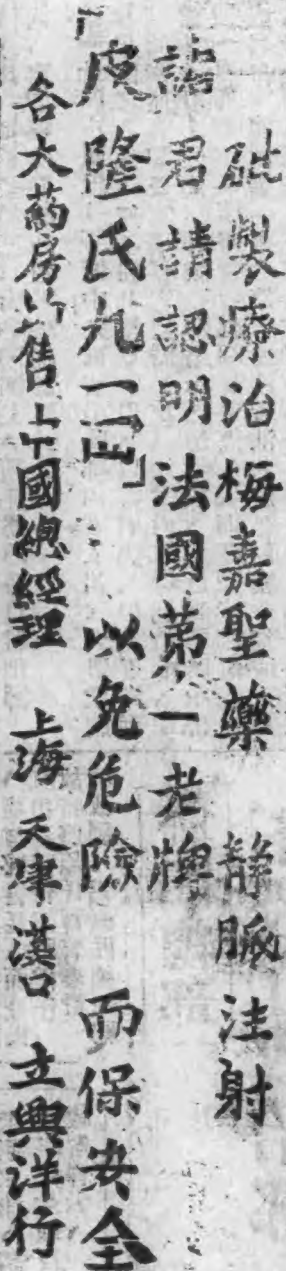 砒製療治梅毒聖藥 靜脈注射
諸君請認明法國第一老牌
「皮隆氏九一四」以免危險 而保安全
各大藥房均售 中國總經理 上海 天津 漢口 立興洋行